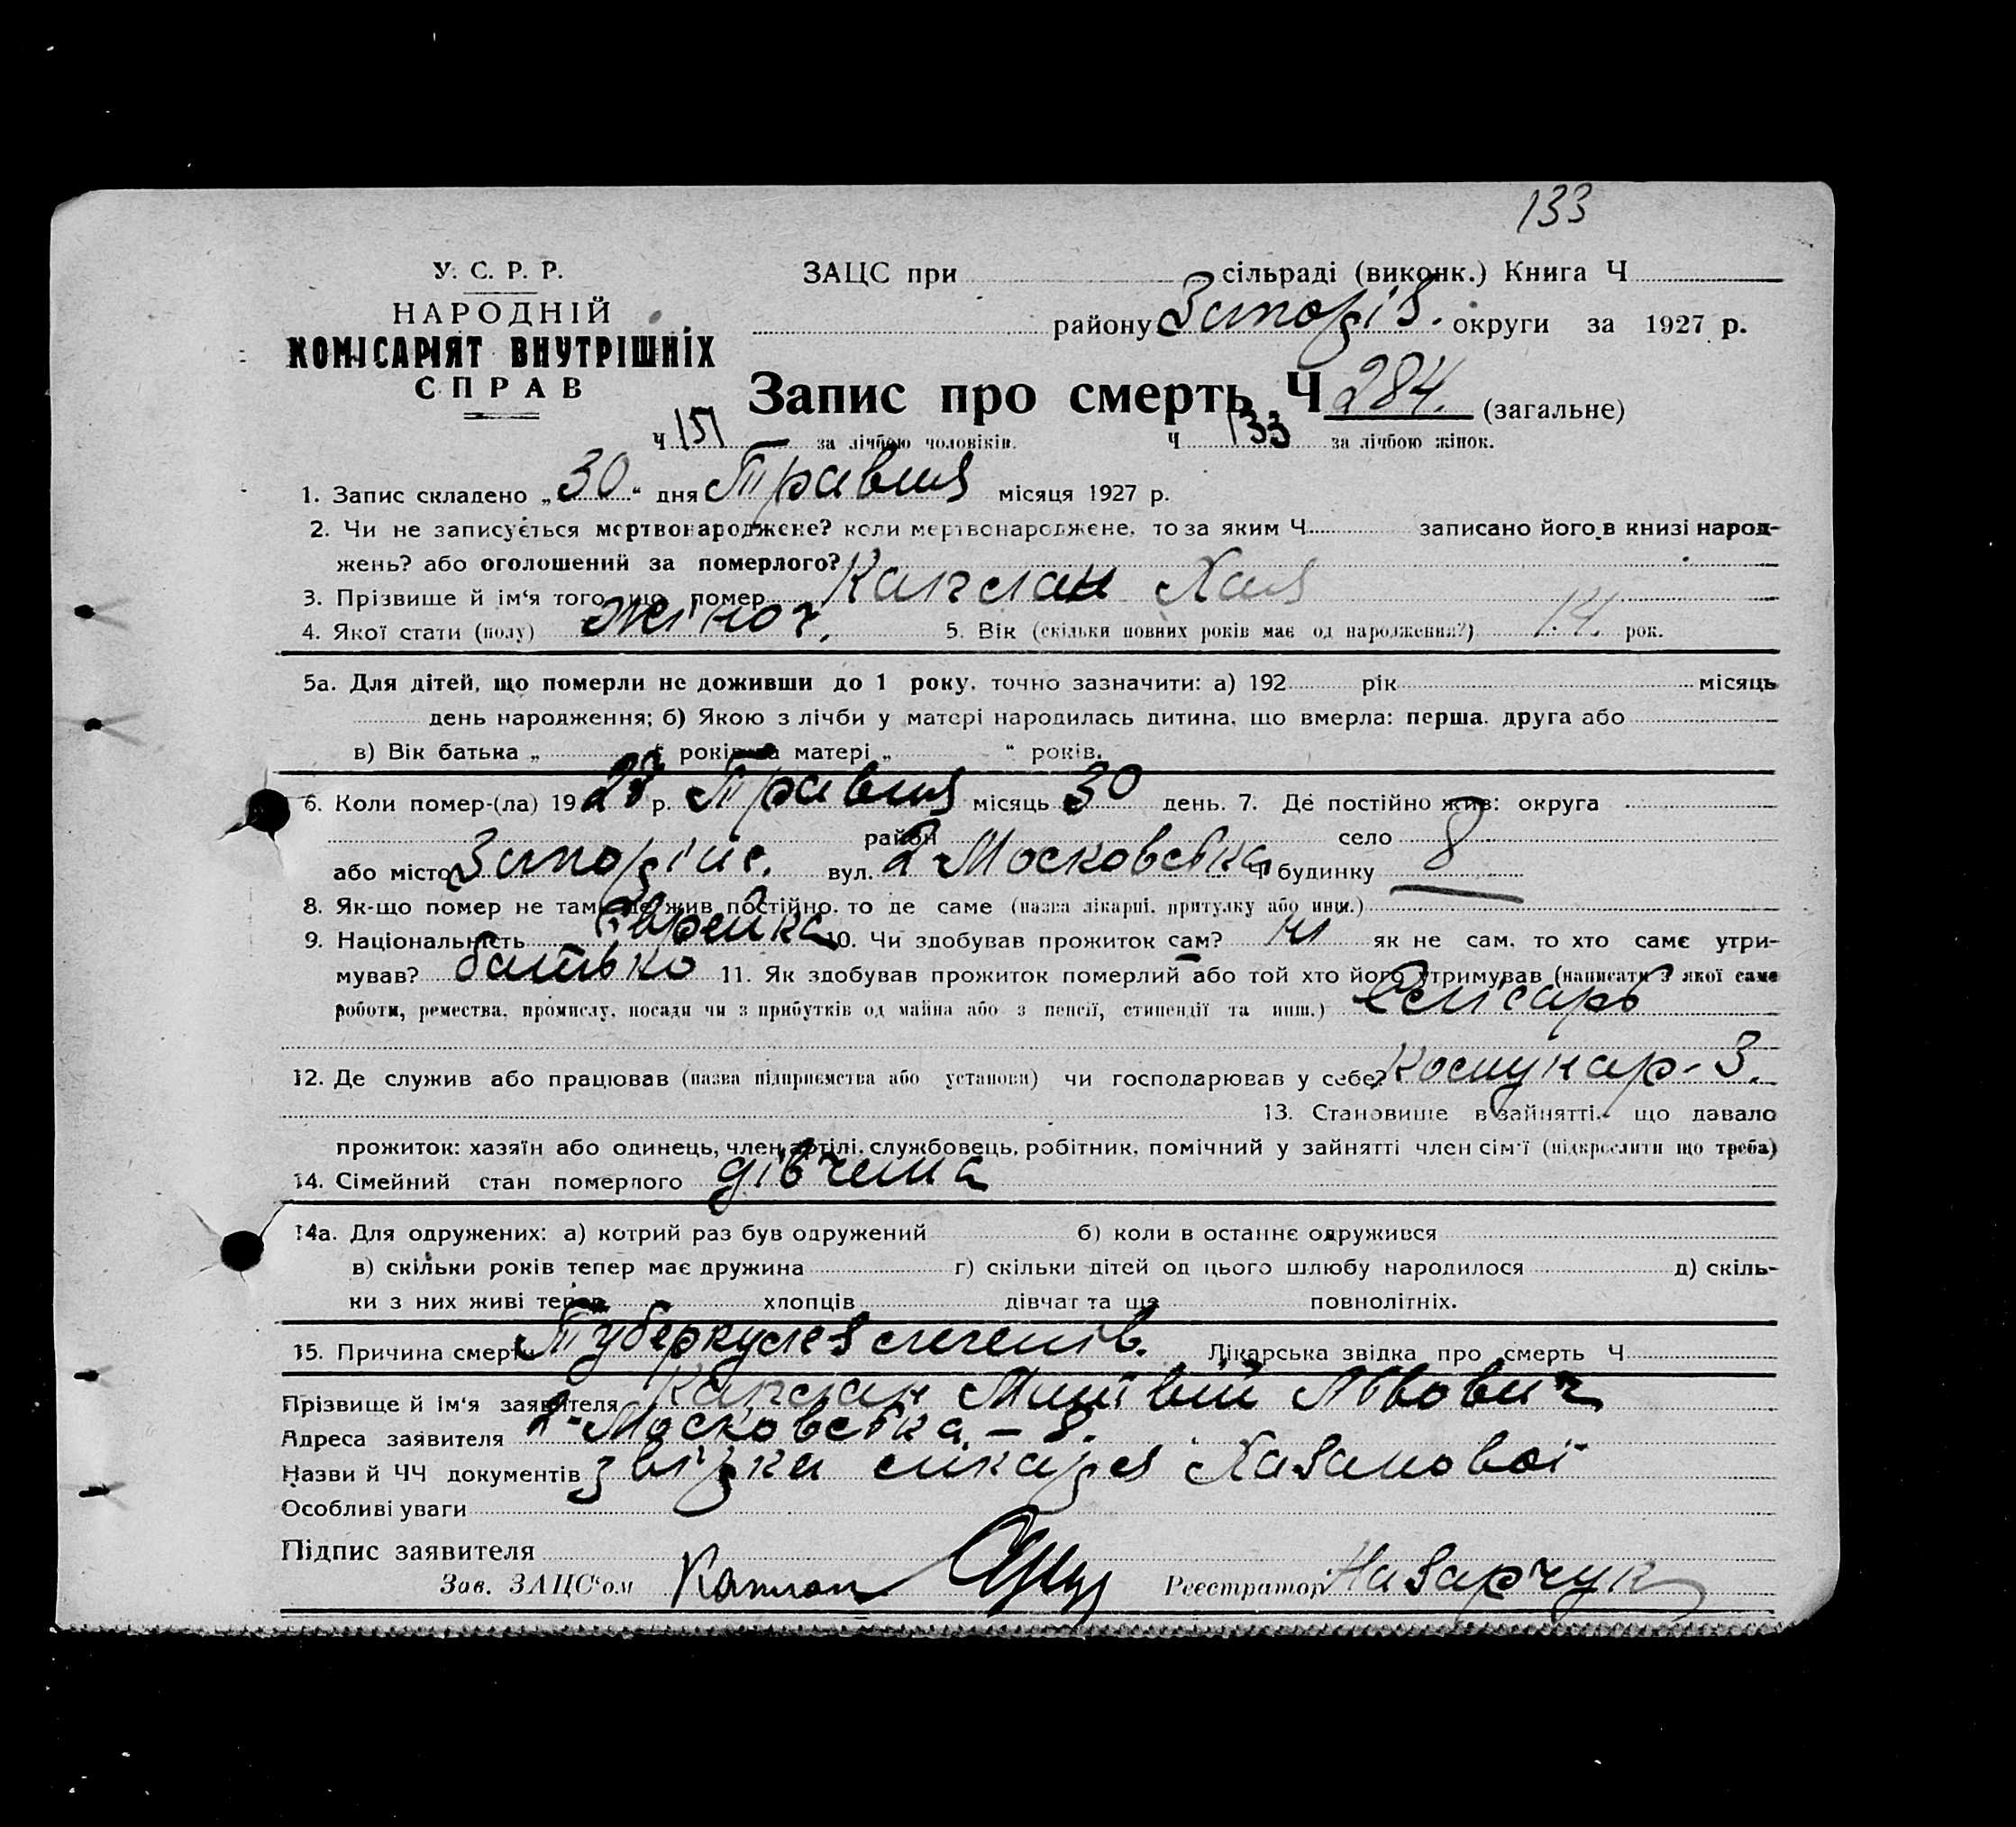 133
У. С. Р. Р.
НАРОДНІЙ
КОМІСАРІЯТ ВНУТРІШНІХ
СПРАВ
ЗАЦС при сільраді (виконк.) Книга Ч
району Запоріз. округи за 1927 р.
Запис про смерть Ч 284. (загальне)
Ч 151 за лічбою чоловіків. Ч 133 за лічбою жінок.
1. Запис складено „30“ дня Травня місяця 1927 р.
2. Чи не записується мертвонароджене? коли мертвонароджене, то за яким Ч записано його в книзі народ-
жень? або оголошений за померлого?
3. Прізвище й ім‘я того, що помер Каплан Хая
4. Якої стати (полу) жіноч. 5. Вік (скільки повних років має од народження?) 14. рок.
5а. Для дітей, що померли не доживши до 1 року, точно зазначити: а) 192 рік місяць
день народження; б) Якою з лічби у матері народилась дитина, що вмерла: перша, друга або
в) Вік батька „ “ років та матері „ “ років.
6. Коли помер-(ла) 19 р. Травня місяць 30 день. 7. Де постійно жив: округа
район село
або місто Запоріже. вул. 2 Московська Ч будинку 8
8. Як-що помер не там, де жив постійно, то де саме (назва лікарні, притулку або инш.)
9. Національність Єврейка 10. Чи здобував прожиток сам? ні як не сам, то хто саме утри-
мував? батько 11. Як здобував прожиток померлий або той хто його утримував (написати з якої саме
роботи, ремества, промислу, посади чи з прибутків од майна або з пенсії, стипендії та инш.) Слісарь
12. Де служив або працював (назва підприємства або установи) чи господарював у себе? Комунар-З.
13. Становище в зайнятті, що давало
прожиток: хазяїн або одинець, член артілі, службовець, робітник, помічний у зайнятті член сім‘ї (підкреслити що треба)
14. Сімейний стан померлого дівчина
14а. Для одружених: а) котрий раз був одружений б) коли в останнє одружився
в) скільки років тепер має дружина г) скільки дітей од цього шлюбу народилося д) скіль-
ки з них живі тепер хлопців дівчат та ще повнолітніх.
15. Причина смерти Туберкулез легенів. Лікарська звідка про смерть Ч
Прізвище й ім‘я заявителя Каплан Матвій Львович
Адреса заявителя 2-Московська – 8.
Назви й ЧЧ документів звідка лікаря Хазанової
Особливі уваги
Підпис заявителя
Зав. ЗАЦС‘ом Каплан Реєстратор Назарчук